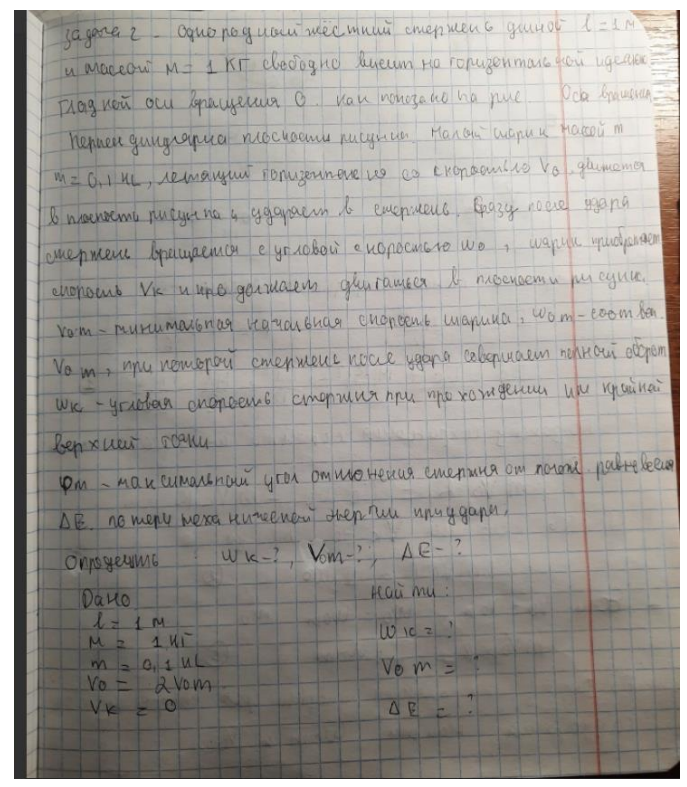 Задача 2 - Однородный жёсткий стержень длиной l = 1 м
и массой M = 1 кг свободно висит на горизонтальной идеаль
гладкой оси вращения О. как показано на рис. Ось вращения
перпендикулярна плоскости рисунка. Малый шарик массой m
m = 0,1 кг, летящий горизонтально со скоростью V₀, движется
в плоскости рисунка и ударяет в стержень. Сразу после удара
стержень вращается с угловой скоростью ω₀, шарик приобретает
скорость Vк и продолжает двигаться в плоскости рисунк.
V₀m - минимальная начальная скорость шарика, ω₀m - соответ.
V₀m, при которой стержень после удара совершает полный оборот
ωк - угловая скорость стержня при прохождении им крайней
верхней точки
φm - максимальный угол отклонения стержня от полож. равновесия
ΔE. потери механической энергии при ударе.
Определить : ωк-?, V₀m-?, ΔE-?
Дано
Найти:
l = 1 м
M = 1 кг
ωк = ?
m = 0,1 кг
V₀m = ?
V₀ = 2V₀m
Vк = 0
ΔE = ?